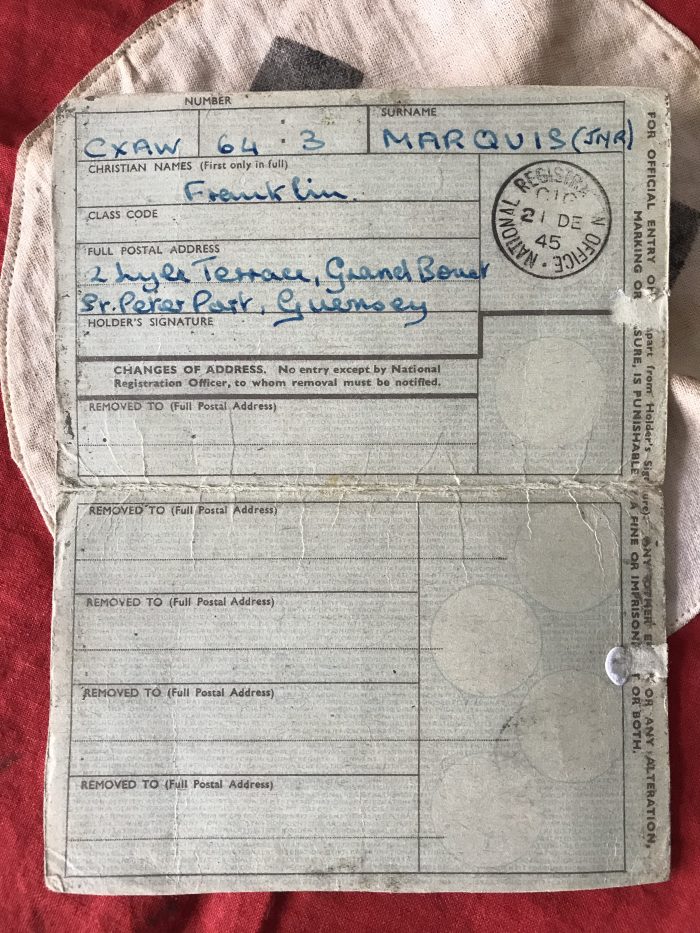 NUMBER
SURNAME
CXAW 64 : 3 MARQUIS (JNR)
CHRISTIAN NAMES (First only in full)
Franklin.
CLASS CODE
FULL POSTAL ADDRESS
2 Lyle Terrace, Grand Bouet
St. Peter Port, Guernsey
HOLDER'S SIGNATURE
NATIONAL REGISTRATION OFFICE
21 DE
45
CHANGES OF ADDRESS. No entry except by National
Registration Officer, to whom removal must be notified.
REMOVED TO (Full Postal Address)
REMOVED TO (Full Postal Address)
REMOVED TO (Full Postal Address)
REMOVED TO (Full Postal Address)
REMOVED TO (Full Postal Address)
FOR OFFICIAL ENTRY apart from Holder's ANY OR ANY ALTERATION,
MARKING OR IS PUNISHABLE A FINE OR OR BOTH.